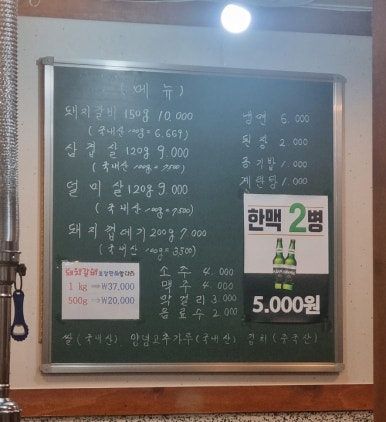 (메뉴)
돼지갈비 150g 10,000
(국내산 100g = 6.667)
삼겹살 120g 9.000
(국내산 100g = 7500)
덜미살 120g 9.000
(국내산 100g = 7500)
돼지껍데기 200g 7.000
(국내산 100g = 3500)
냉면 6.000
된장 2.000
공기밥 1.000
계란탕 1.000
돼지갈비 포장판매합니다
1 kg ⇒ ₩37,000
500g ⇒ ₩20,000
소주 4.000
맥주 4.000
막걸리 3.000
음료수 2.000
한맥 2병
5.000원
쌀(국내산) 양념고추가루(국내산) 김치(중국산)